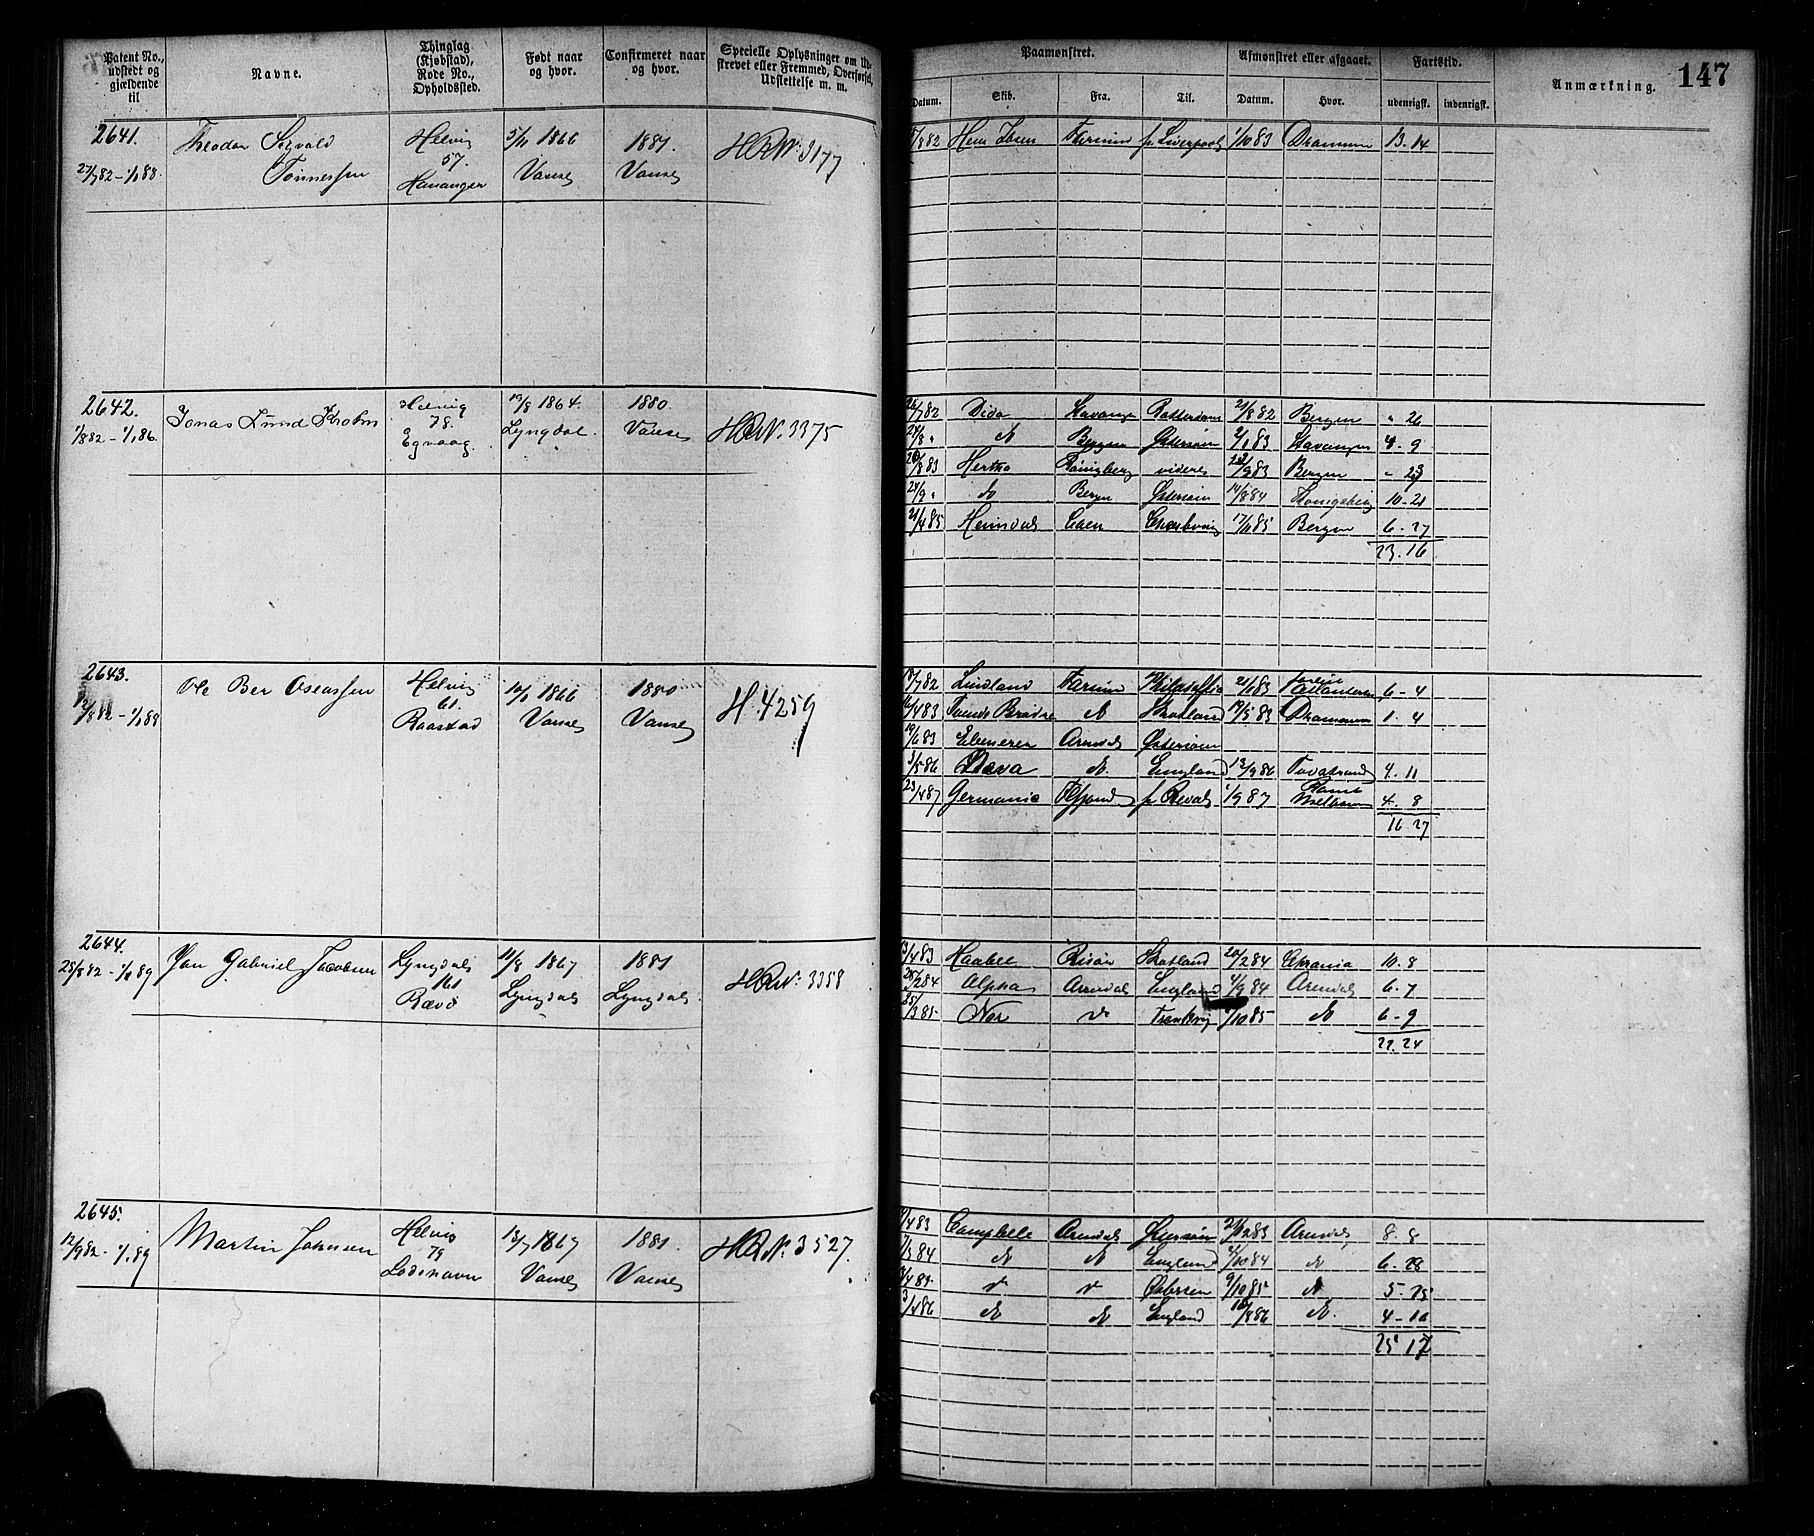 Patent No., udstedt og gjældende til
Navne.
Thinglag (Kjøbstad), Rode No., Opholdssted.
Født naar og hvor.
Confirmeret naar og hvor.
Specielle Oplysninger om Udskrevet eller Fremmed, Overførsel, Udslettelse m. m.
Paamønstret.
Afmønstret eller afgaaet.
Fartstid.
Anmærkning.
147
Datum. Skib. Fra. Til. Datum. Hvor. udenrigsk. indenrigsk.
2641. Theodor Sigvald Helvig 5/11 1866 1881. HRN. 3177
27/7 82 - 1/1 88. Tønnessen 57. Hananger Vanse Vanse
/8 82 Farsund fr Liverpool 1/10 83 Drammen 13. 14
2642. Jonas Lund Helvig 19/8 1864. 1880. HRN. 3375
1/8 82 - 1/1 86. 78. Egvaag. Lyngdal. Vanse
26/7 82 Dida Stavanger Rotterdam 21/8 82 Bergen " 26
24/8 " do Bergen Østersøen 2/1 83 Stavanger 4. 9
20/8 83 Hertha Kønigberg videre 22/9 83 Bergen - 23
24/9 " do Bergn Østersøen 14/8 84 Kønigsberg 10-21
21/4 85 Heimdal Caen 17/11 85 Bergen 6-27
23. 16
2643. Ole Ber Oseassen Helvig 1866 1880 H. 4259
- 1/1 88 61. Raastad Vanse Vanse
/7 82 Lindland Farsund 21/1 83 6-4
/4 83 Brødre do Skotland 19/5 83 Drammen 1. 4
19/6 83 Ebenezer Arendal Østersøen
3/5 86 do. England 13/9 86 4. 11
23/4 87 Germania fr Reval 1/9 87 4. 8
16 27
2644. Gabriel Jacobsen Lyngdal 11/8 1867 1881 HRN. 3358
25/8 82 - 1/1 89 161 Rævø Lyngdal Lyngdal
/4 83 Haabet Risør Skotland 20/2 84 10. 8
/2 84 Alpha Arendal England 4/9 84 Arendal 6. 7
25/3 85 Nor do /10 85 do 6-9
22. 24
2645. Martin Johnsen Helvig 13/7 1867 1881. HRN. 3527.
12/9 82 - 1/1 89 79 Lodshavn Vanse Vanse
/4 83 Campbelle Arendal 21/12 83 Arendal 8. 8
/3 84 do do England 4/10 84 do 6-28
/4 85 do do Østersøen 9/10 85 do 5-25
3/4 86 do do England /8 86 do. 4-16
25 17